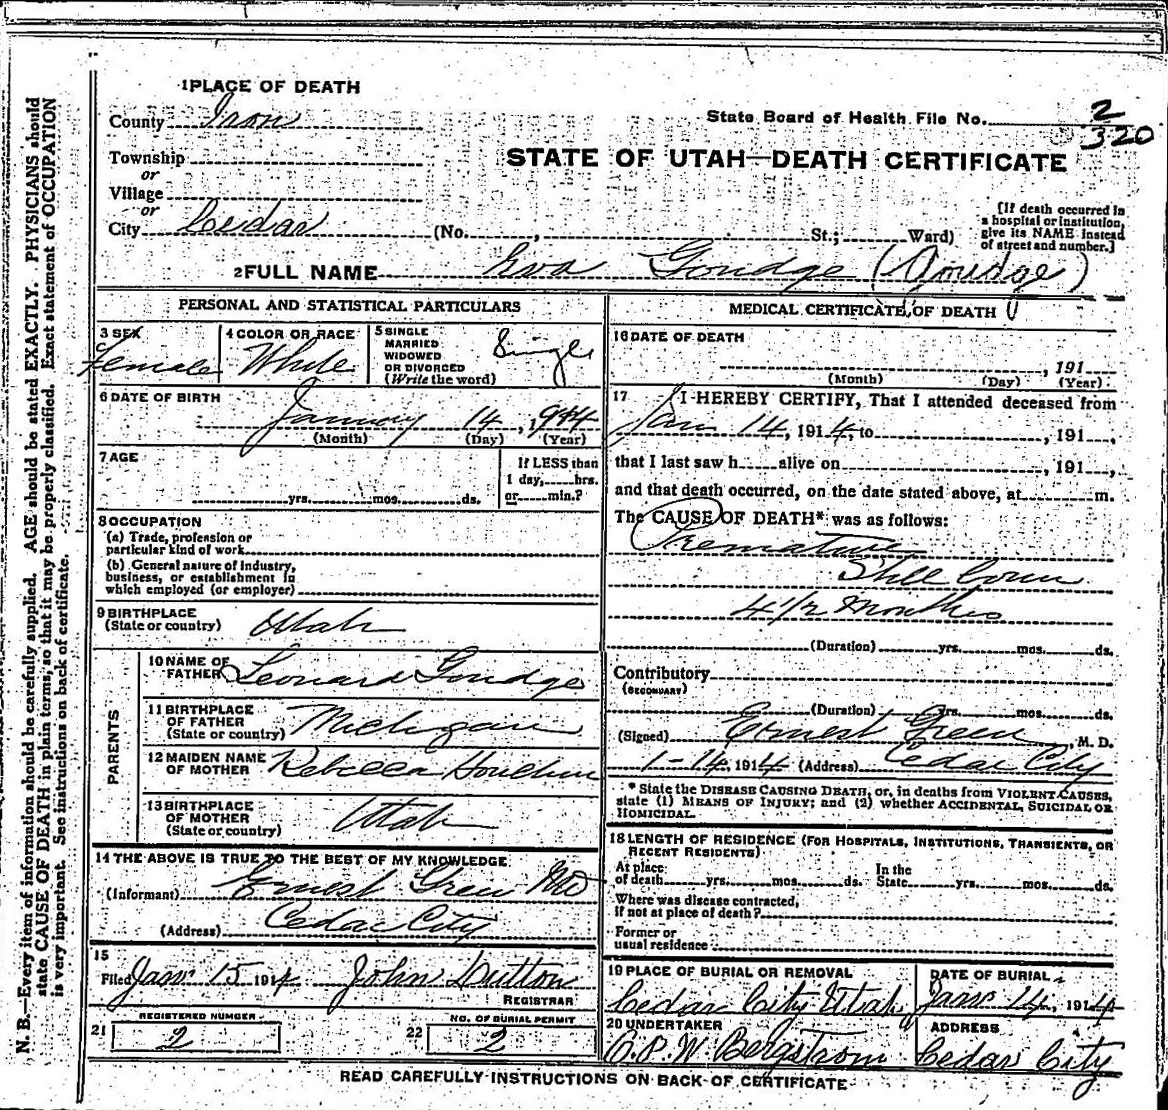 1 PLACE OF DEATH
County Iron
State Board of Health File No. 2
320
Township
or
STATE OF UTAH—DEATH CERTIFICATE
Village
or
City Cedar (No. , St.; Ward)
[If death occurred in
a hospital or institution,
give its NAME instead
of street and number.]
2 FULL NAME Eva Goudge (Goudge)
PERSONAL AND STATISTICAL PARTICULARS
3 SEX
Female
4 COLOR OR RACE
White
5 SINGLE
MARRIED
WIDOWED
OR DIVORCED
(Write the word)
Single
6 DATE OF BIRTH
January 14, 1914
(Month) (Day) (Year)
7 AGE
yrs. mos. ds.
If LESS than
1 day, hrs.
or min.?
8 OCCUPATION
(a) Trade, profession or
particular kind of work
(b) General nature of industry,
business, or establishment in
which employed (or employer)
9 BIRTHPLACE
(State or country) Utah
PARENTS
10 NAME OF
FATHER Leonard Goudge
11 BIRTHPLACE
OF FATHER
(State or country) Michigan
12 MAIDEN NAME
OF MOTHER Rebecca Houchen
13 BIRTHPLACE
OF MOTHER
(State or country) Utah
14 THE ABOVE IS TRUE TO THE BEST OF MY KNOWLEDGE
(Informant) Ernest Green MD
(Address) Cedar City
15
Filed Jan 15 1914 John Dutton
REGISTRAR
21 REGISTERED NUMBER
2
22 NO. OF BURIAL PERMIT
2
MEDICAL CERTIFICATE OF DEATH
16 DATE OF DEATH
, 191
(Month) (Day) (Year)
17 I HEREBY CERTIFY, That I attended deceased from
Jan 14, 1914, to , 191 ,
that I last saw h alive on , 191 ,
and that death occurred, on the date stated above, at m.
The CAUSE OF DEATH* was as follows:
Premature
Still born
4 1/2 Months
(Duration) yrs. mos. ds.
Contributory
(SECONDARY)
(Duration) yrs. mos. ds.
(Signed) Ernest Green, M. D.
1-14, 1914 (Address) Cedar City
* State the DISEASE CAUSING DEATH, or, in deaths from VIOLENT CAUSES,
state (1) MEANS OF INJURY; and (2) whether ACCIDENTAL, SUICIDAL OR
HOMICIDAL.
18 LENGTH OF RESIDENCE (FOR HOSPITALS, INSTITUTIONS, TRANSIENTS, OR
RECENT RESIDENTS)
At place
of death yrs. mos. ds.
In the
State yrs. mos. ds.
Where was disease contracted,
if not at place of death?
Former or
usual residence
19 PLACE OF BURIAL OR REMOVAL
Cedar City Utah
DATE OF BURIAL
Jan 14, 1914
20 UNDERTAKER
C.P.W. Bergstrom
ADDRESS
Cedar City
READ CAREFULLY INSTRUCTIONS ON BACK OF CERTIFICATE
N. B.—Every item of information should be carefully supplied. AGE should be stated EXACTLY. PHYSICIANS should
state CAUSE OF DEATH in plain terms, so that it may be properly classified. Exact statement of OCCUPATION
is very important. See instructions on back of certificate.